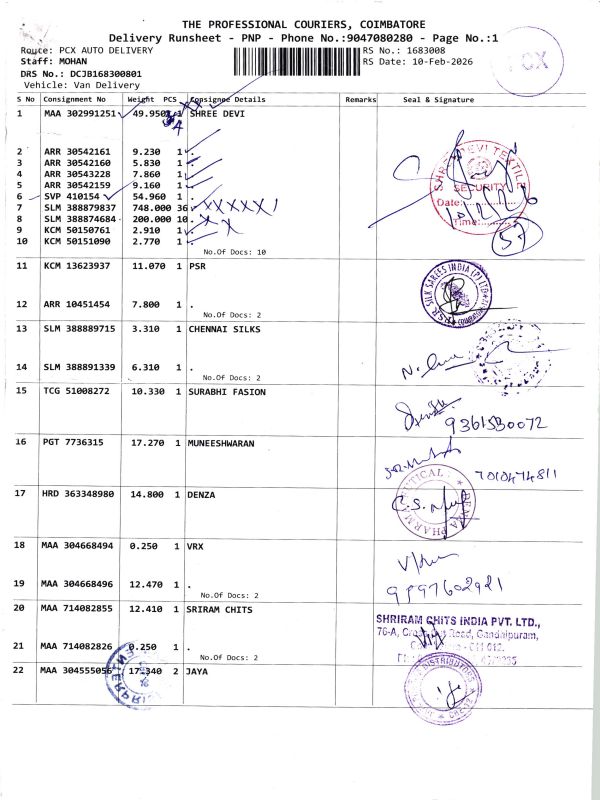 THE PROFESSIONAL COURIERS, COIMBATORE
Delivery Runsheet - PNP - Phone No.:9047080280 - Page No.:1
Route: PCX AUTO DELIVERY
RS No.: 1683008
Staff: MOHAN
RS Date: 10-Feb-2026
DRS No.: DCJB168300801
Vehicle: Van Delivery
PCX
S No Consignment No Weight PCS Consignee Details Remarks Seal & Signature
1 MAA 302991251 49.950 SHREE DEVI
2 ARR 30542161 9.230 1 .
3 ARR 30542160 5.830 1 .
4 ARR 30543228 7.860 1 .
5 ARR 30542159 9.160 1 .
6 SVP 410154 54.960 1 .
7 SLM 388879937 748.000 36
8 SLM 388874684 200.000 10 .
9 KCM 50150761 2.910 1 .
10 KCM 50151090 2.770 1 .
No.Of Docs: 10
SHREE DEVI TEXTILE
SECURITY
Date:
10/2/26
Time:
57
11 KCM 13623937 11.070 1 PSR
12 ARR 10451454 7.800 1 .
No.Of Docs: 2
PSR SILK SAREES INDIA (P) LTD
13 SLM 388889715 3.310 1 CHENNAI SILKS
14 SLM 388891339 6.310 1 .
No.Of Docs: 2
15 TCG 51008272 10.330 1 SURABHI FASION
9361530072
16 PGT 7736315 17.270 1 MUNEESHWARAN
7010474811
17 HRD 363348980 14.800 1 DENZA
DENZA PHARMACEUTICAL
18 MAA 304668494 0.250 1 VRX
19 MAA 304668496 12.470 1 .
No.Of Docs: 2
9597602921
20 MAA 714082855 12.410 1 SRIRAM CHITS
21 MAA 714082826 0.250 1 .
No.Of Docs: 2
SHRIRAM CHITS INDIA PVT. LTD.,
76-A, Road, Gandhipuram,
22 MAA 304555056 17.340 2 JAYA
DISTRIBUTORS
ENTERPRI